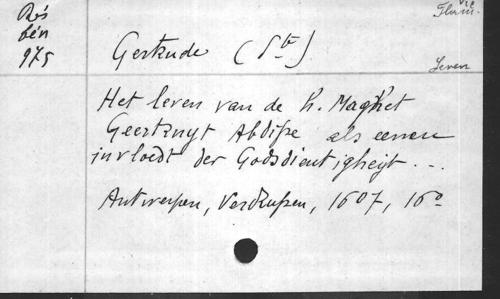 Rés
bén
975
Gertrude (Ste)
Leven
Het leven van de h. Maghet
Geertruyt Abdisse als eenen
invloedt der Godsdientigheijt...
Antwerpen, Verdussen, 1607, 16o